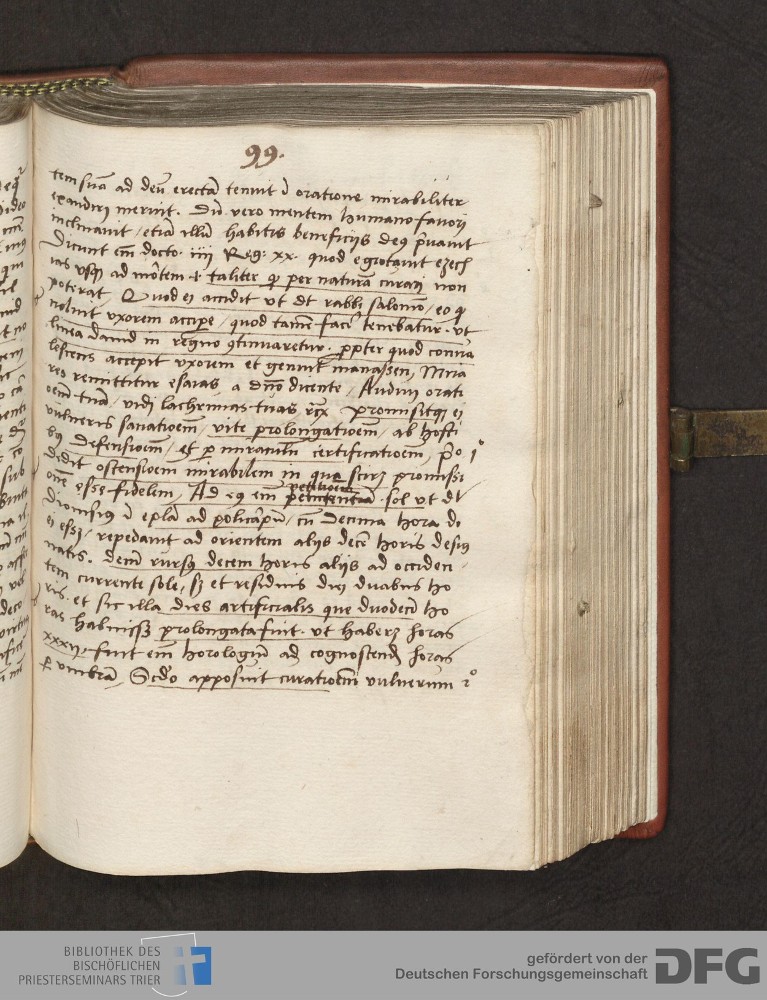 99.
tem suā ad deū erectā tenuit ī oratione mirabiliter
exaudiri meruit. Dū vero mentem humano favori
inclinavit / etiā illū habitis beneficijs deq p̄uauit
Dicunt em̄ docto. iiij Reg: xx. quod egrotauit ezech
ias usq ad mōtem taliter q per naturā curari non
poterat, Quod ei accidit ut dt rabbi salomō / eo q
noluit uxorem accipe / quod tamē facē tenebatur. ut
linea dauid in regno 9tinuaretur. ppter quod conua
lescens accepit uxorem et genuit manassen,
reo remittitur esaias a dn̄o dicente / Audiui orati
oem̄ tuā / vidi lachrimas tuas Promisitq ei
vulneris sanatioem̄ / vite prolongatioem̄ / ab hosti
bq defensioem̄ / Et p miraculū certificatioem̄, Pº
dedit ostensioem mirabilem in qua promissi
one esse fidelem, Ad eq em̄ petitioem penitentiā sol ut dt
Dionisius ī epla ad policarpū / cū decima hora di
ei esset / repedauit ad orientem alijs decē horis desig
natis. demū rursq decem horis alijs ad occiden
tem currente sole / et residuis diei duabus ho
ris. et sic illa dies artificialis que duodecī ho
ras habuisset prolongata fuit. ut haberet horas
xxxij. fuit em̄ horologiū ad cognoscend horas
p umbrā, Scdo apposuit curatioem̄ vulnerum 2º
BIBLIOTHEK DES
BISCHÖFLICHEN
PRIESTERSEMINARS TRIER
gefördert von der
Deutschen Forschungsgemeinschaft
DFG